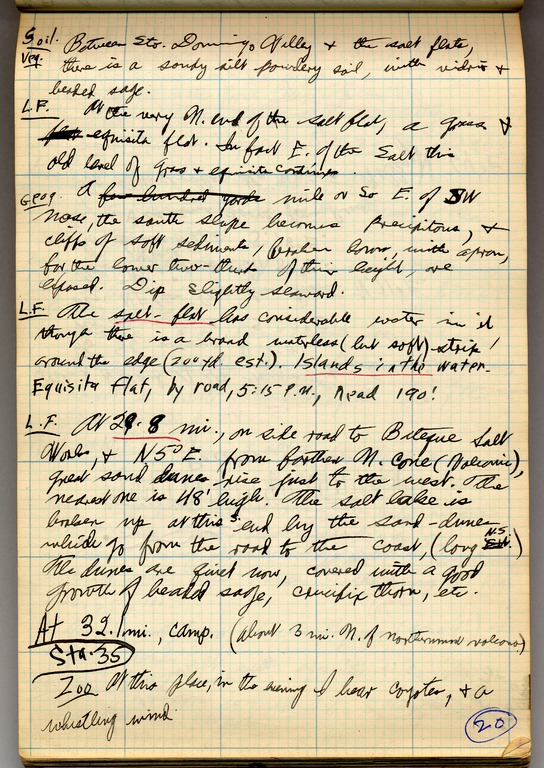 Soil. Between Sto. Domingo Valley & the salt flats,
Veg. there is a sandy silt powdery soil, with vidrio &
beaded sage.
L.F. At the very N. end of the salt flat, a grass &
equisita flat. In fact E. of the Salt this
old level of grass & equisita continues.
Geog. A few hundred yards mile or so E. of SW
nose, the south slope becomes precipitous, &
cliffs of soft sediments, broken down, with apron,
for the lower two-thirds of their height, are
exposed. Dip slightly seaward.
L.F. The salt-flat has considerable water in it
though there is a broad waterless (but soft) strip
around the edge (200 yd. est.). Islands in the water.
Equisita Flat, by road, 5:15 P.M., Read 190'.
L.F. At 29.8 mi., on side road to Biteque Salt
Works, & N 5° E. from farther N. Cone (Volcanic),
great sand dunes rise just to the west. The
nearest one is 48' high. The salt lake is
broken up at this end by the sand-dunes
which go from the road to the coast, (long N.S.)
The dunes are quiet now, covered with a good
growth of beaded sage, crucifix thorn, etc.
At 32.1 mi., camp. (about 3 mi. N. of northernmost volcano)
Sta. 35
Zoo At this place, in the evening I hear coyotes, & a
whistling wind.
20